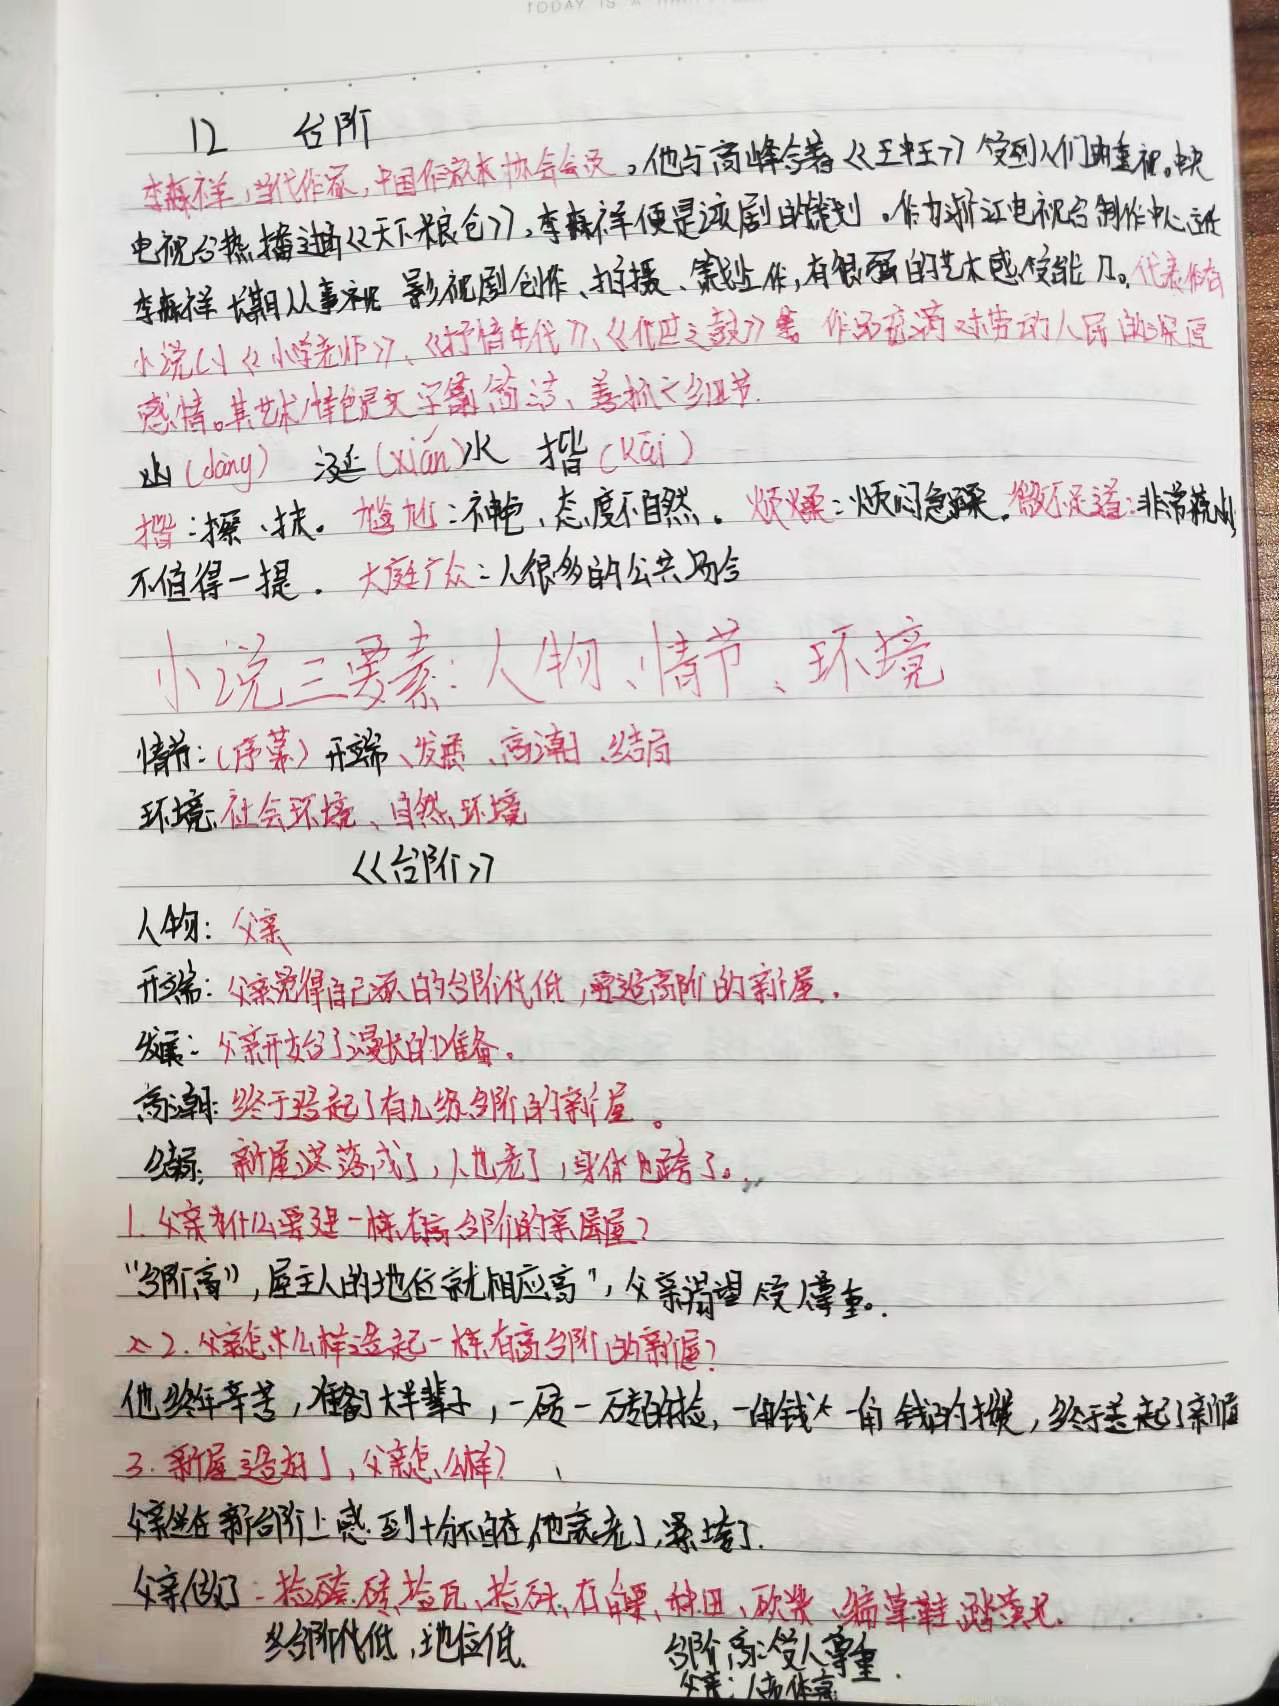 TODAY IS A
12 台阶
李森祥,当代作家,中国作家协会会员。他与高峰合著《王中王》受到人们的重视。中央
电视台热播过《天下粮仓》,李森祥便是该剧的策划。作为浙江电视台制作中心主任
李森祥长期从事影视剧创作、拍摄、策划工作,有很强的艺术感受能力。代表作有
小说《小学老师》、《抒情年代》、《传世之鼓》等 作品充满对劳动人民的深厚
感情。其艺术特色是文字简洁、善抓细节.
凼(dàng) 涎(xián)水 揩(Kāi)
揩:擦、抹。 尴尬:神色、态度不自然。 烦躁:烦闷急躁。微不足道:非常藐小,
不值得一提。 大庭广众:人很多的公共场合
小说三要素:人物、情节、环境
情节:(序幕)开端、发展、高潮、结局
环境:社会环境、自然环境
《台阶》
人物:父亲
开端:父亲觉得自己家的台阶低,要造高阶的新屋.
发展:父亲开始了漫长的准备。
高潮:终于造起了有九级台阶的新屋。
结局:新屋落成了,人也老了,身体也垮了。
1.父亲为什么要建一栋有高台阶的新屋?
“台阶高”,屋主人的地位就相应高”,父亲渴望受人尊重。
2.父亲怎么样造起一栋有高台阶的新屋?
他终年辛苦,准备了大半辈子,一砖一砖的捡,一角钱一角钱的攒,终于造起了新屋
3.新屋造好了,父亲怎么样?
父亲坐在新台阶上感到十分不自在,他衰老了,累垮了.
父亲做了:捡砖、捡瓦、捡 石 、种田、砍柴、编草鞋、踏黄泥.
台阶低,地位低. 台阶高:受人尊重.
父亲: